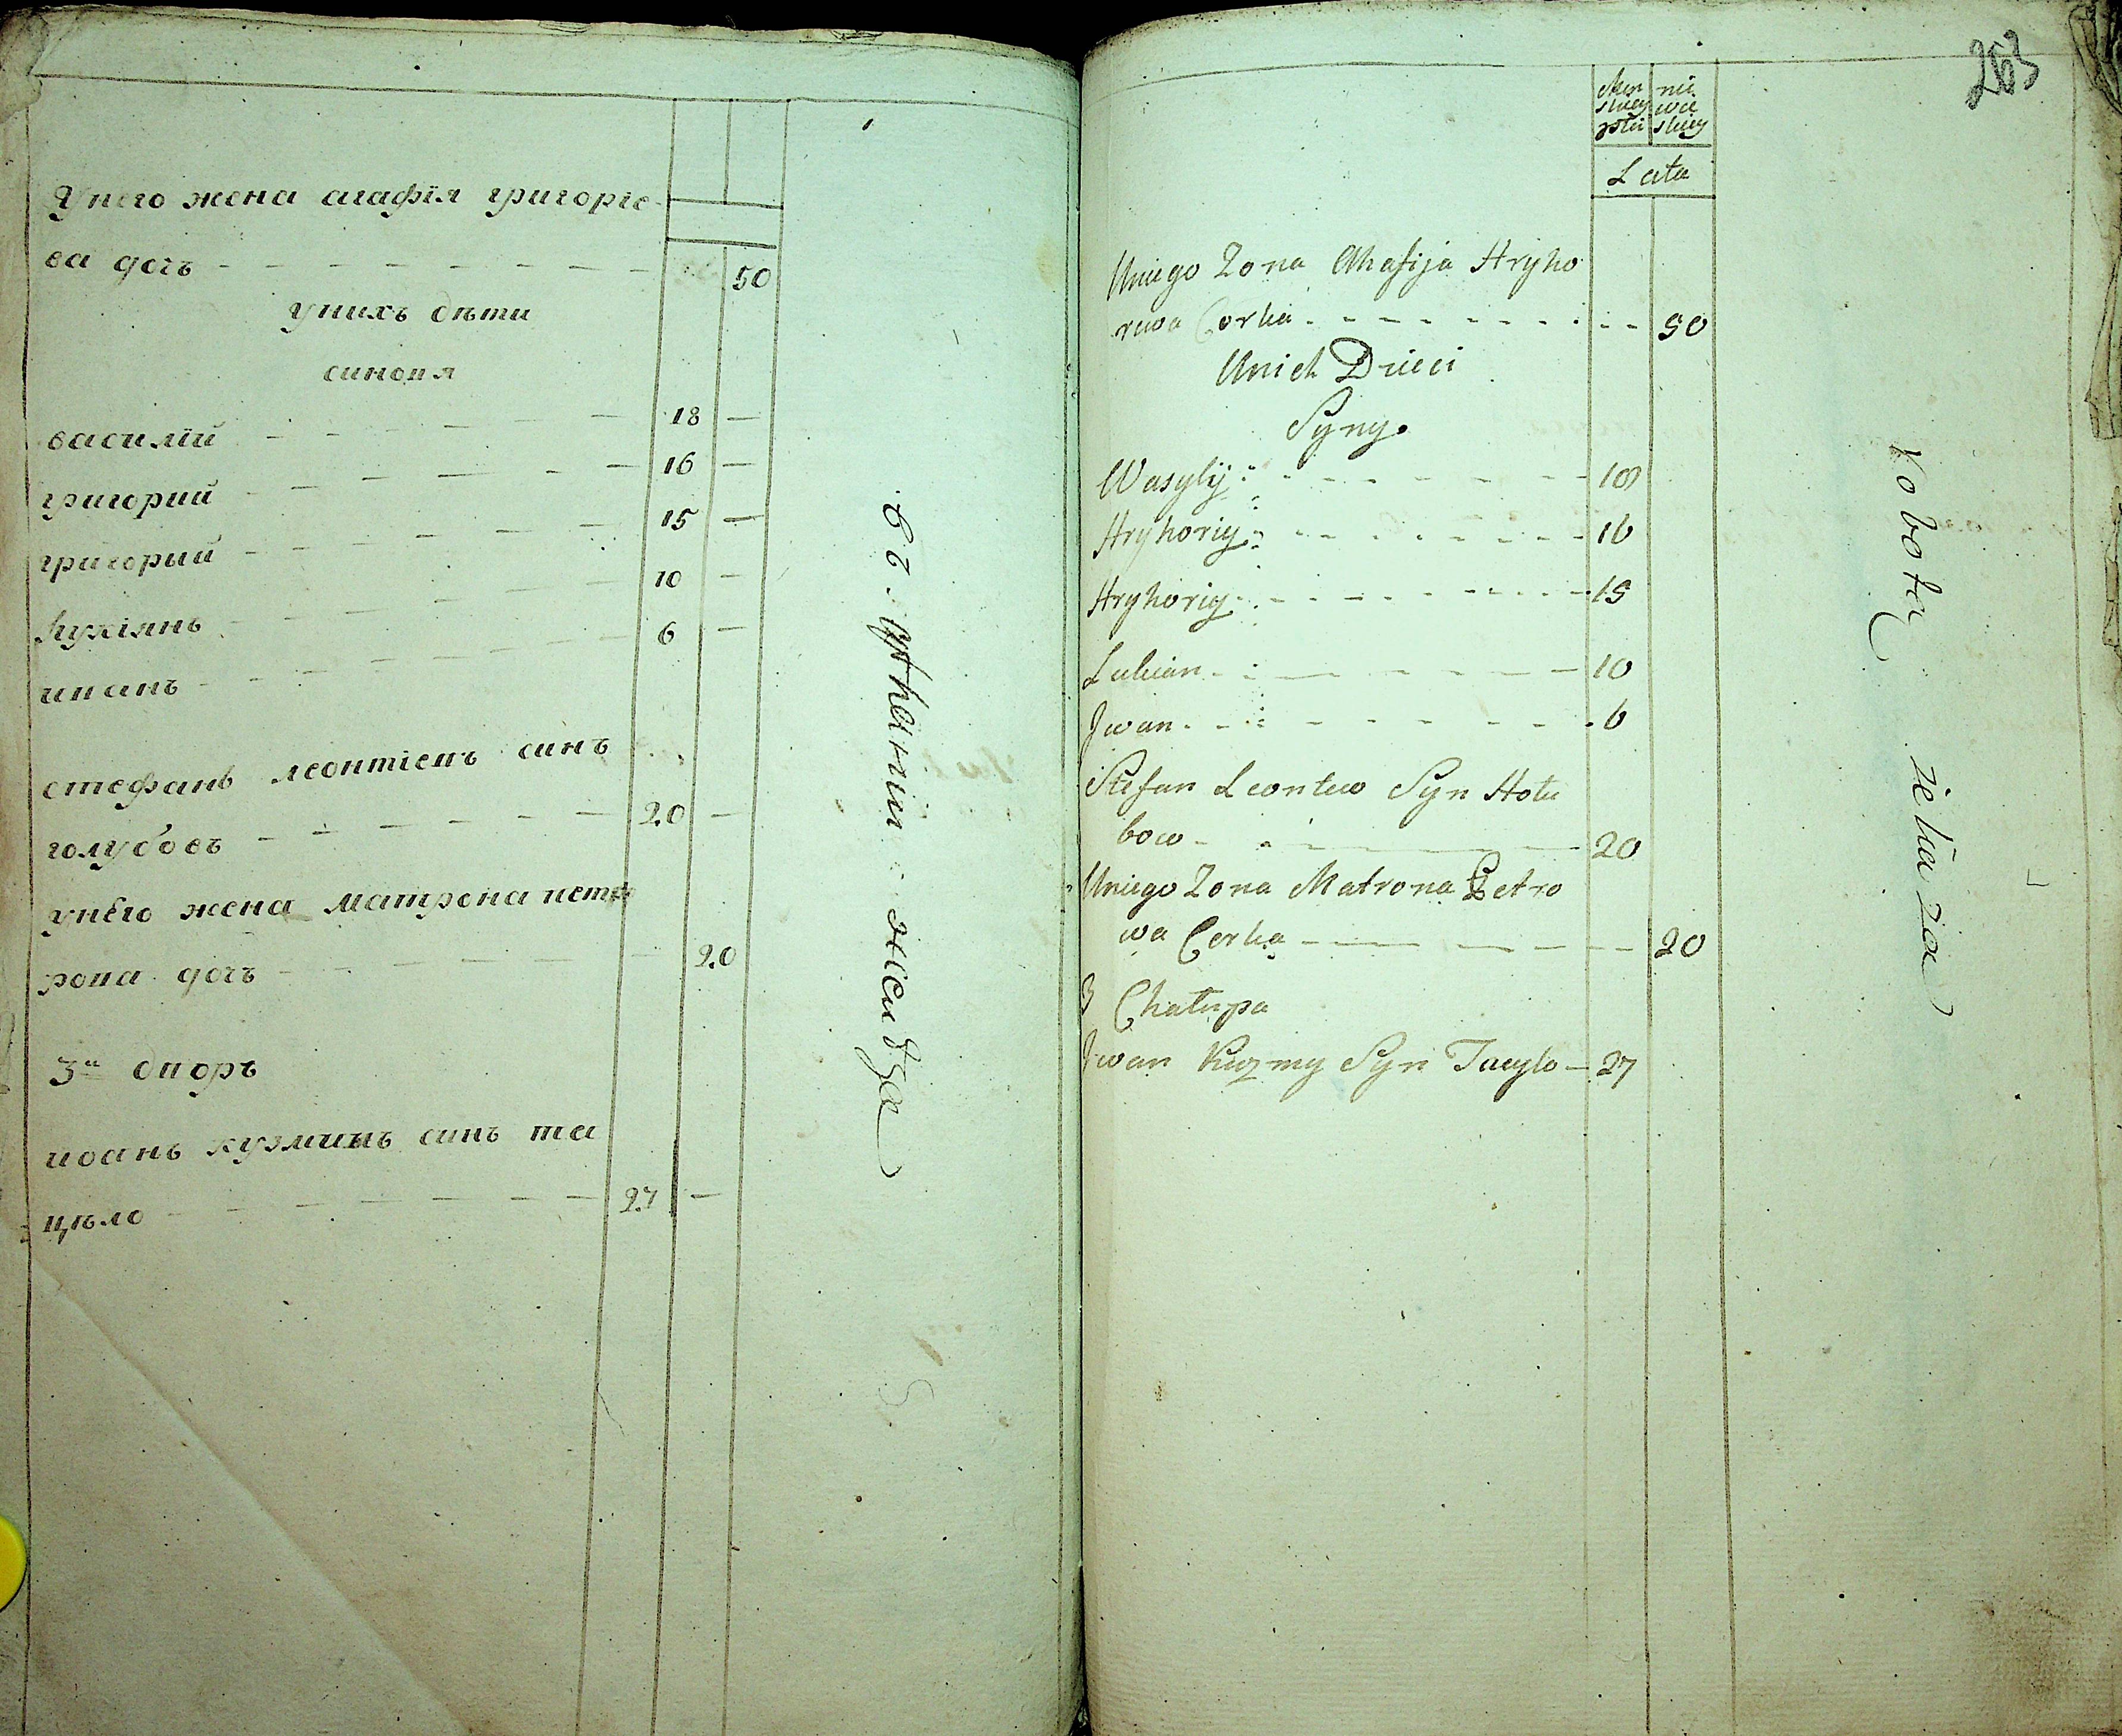 Унего жена агафїя григоріе
ва дочъ 50
унихъ дѣти
синовя
василїй 18
григорий 16
григорий 15
лукіянъ 10
иванъ 6
стефанъ леонтіевъ синъ
голубовъ 20
унего жена матрона пет
рова дочъ 20
3й дворъ
иоанъ кузминъ синъ та
цѣло 27
263
Męz niе
skiey wie
płci skiey
Lata
Uniego Zona Ahafija Hryho
rwa Corka 50
Unich Dzieci
Syny.
Wasylÿ 18
Hryhoriy 16
Hryhoriy 15
Lukian 10
Jwan 6
Stefan Leontew Syn Hołu
bow 20
Uniego Zona Matrona Petro
wa Corka 20
3 Chałupa
Jwan Kuzmy Syn Tacyło 27